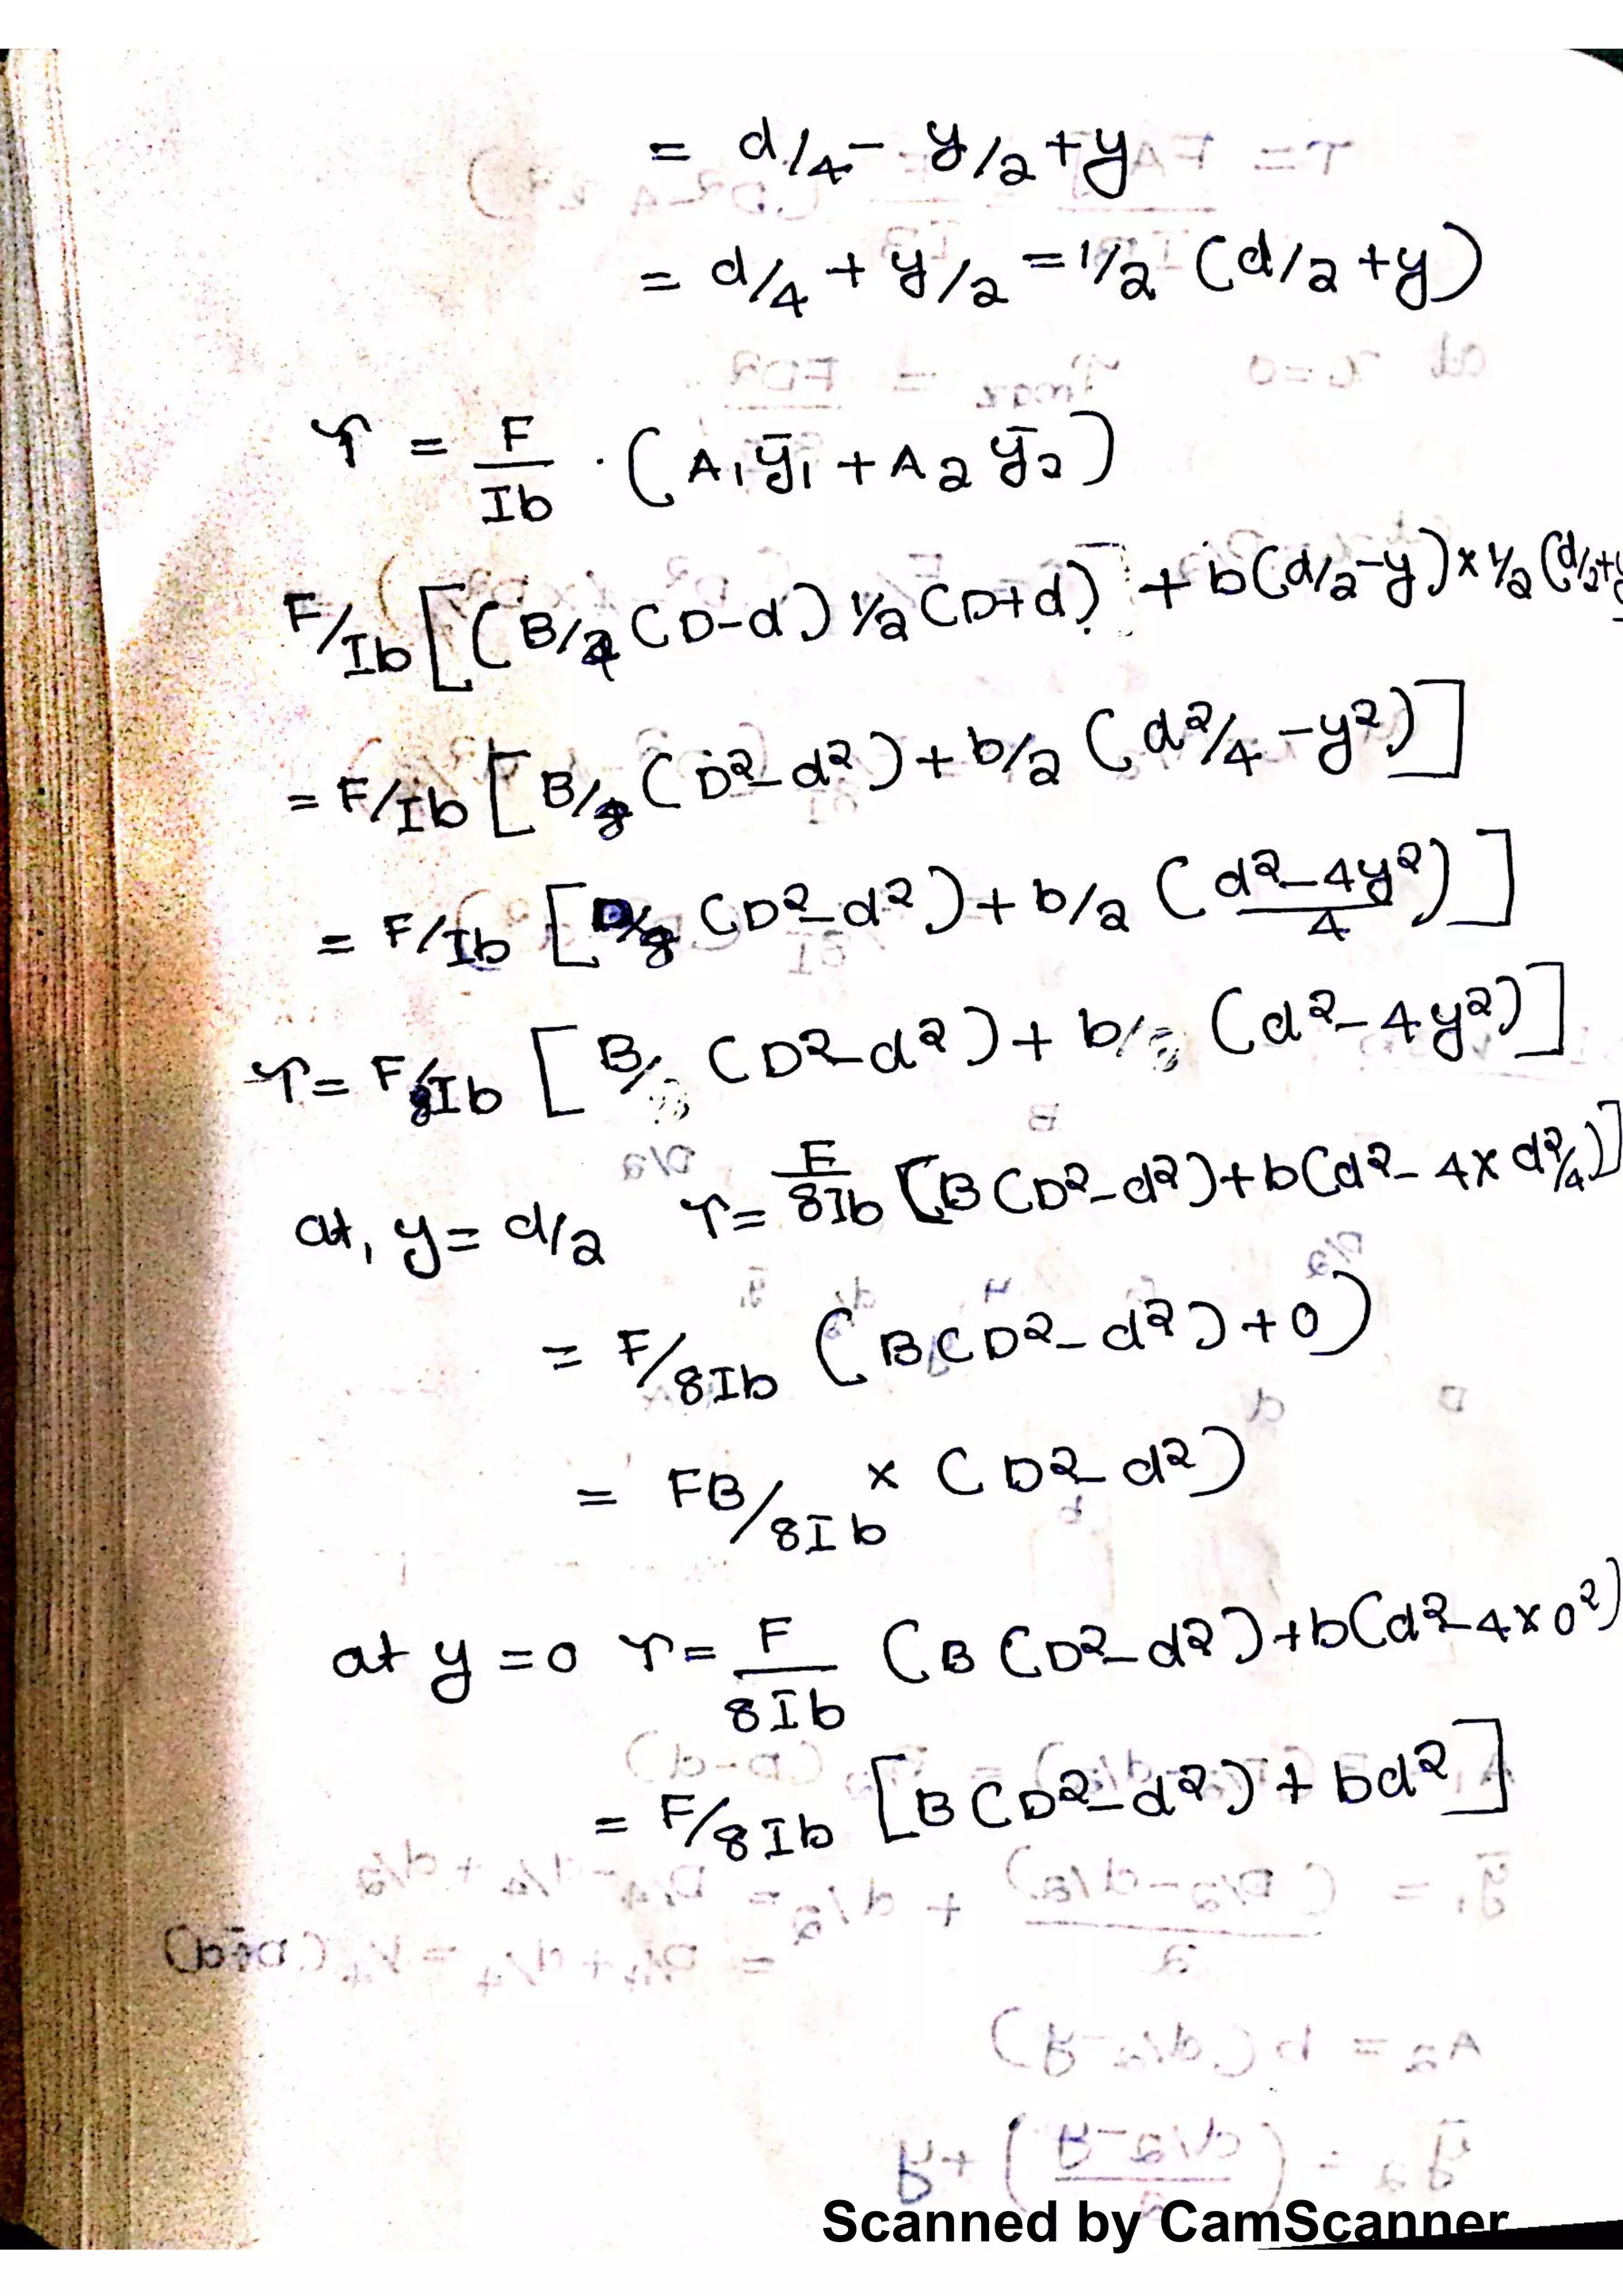 = d/4 - y/2 + y
= d/4 + y/2 = 1/2 (d/2 + y)
τ = F/Ib · (A1ȳ1 + A2ȳ2)
F/Ib [(B/4 (D-d) 1/2 (D+d)) + b(d/2-y) × 1/2 (d/2+y
= F/Ib [B/8 (D²-d²) + b/2 (d²/4 - y²)]
= F/Ib [B/8 (D²-d²) + b/2 ((d²-4y²)/4)]
τ = F/8Ib [B (D²-d²) + b (d²-4y²)]
at, y = d/2 τ = F/8Ib [B(D²-d²) + b(d²- 4×d²/4)]
= F/8Ib (B(D²-d²) + 0)
= FB/8Ib × (D²-d²)
at y = 0 τ = F/8Ib (B(D²-d²) + b(d²-4×0²)
= F/8Ib [B(D²-d²) + bd²]
Scanned by CamScanner